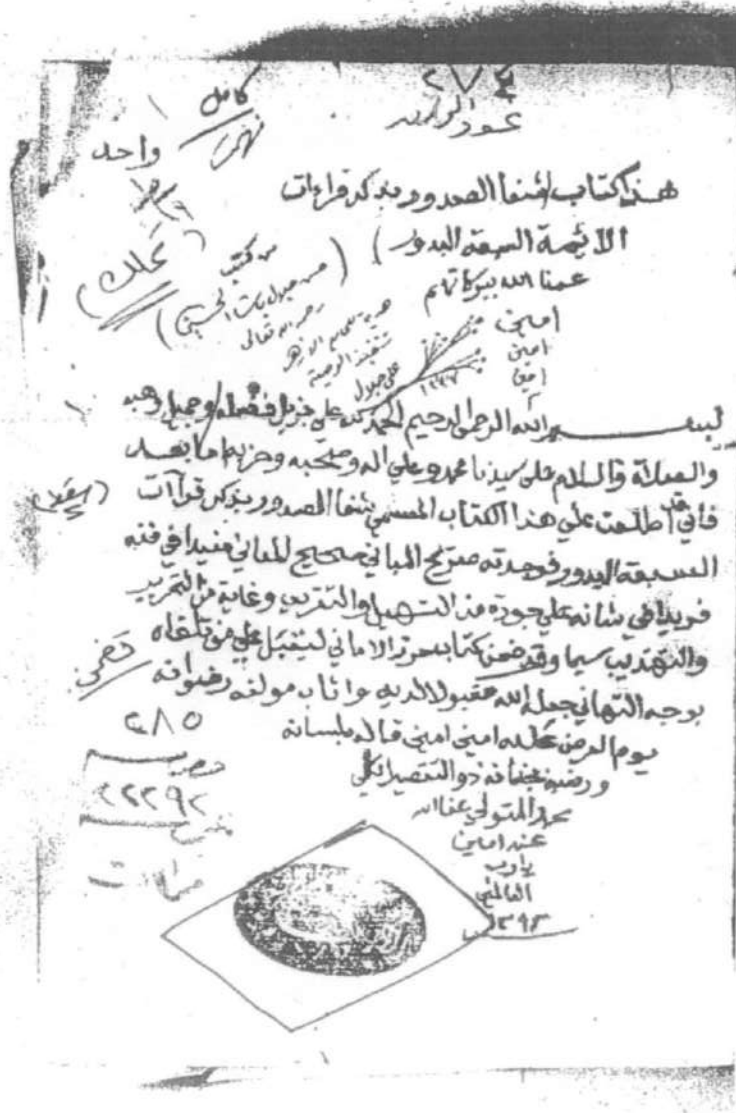 ٢٧٤
كامل
واحد
هذا كتاب شفا الصدور بذكر قراءات
الائمة السبعة البدور
عمنا الله ببركاتهم
امين
امين
امين
من كتب
حسن جلال باشا الحسيني
رحمه الله تعالى
هدية للجامع الازهر
تنفيذا لوصيته
علي جلال
١٣٣٧
بسم الله الرحمن الرحيم الحمد لله على جزيل فضله وجميل وهبه
والصلاة والسلام على سيدنا محمد وعلى اله وصحبه وحزبه اما بعد
فاني قد اطلعت علي هذا الكتاب المسمي بشفا الصدور بذكر قراآت
السبعة البدور فوجدته صريح المباني صحيح المعاني مفيدا في فنه
فريدا في شانه علي جودة من التسهيل والتقريب وغاية من التحرير
والتهذيب سيما وقد ضمن كتاب حرز الاماني ليقبل علي من تلقاه
بوجه التهاني جعله الله مقبولا لديه واثاب مولفه رضوانه
يوم العرض عليه امين امين قاله بلسانه
ورقمه ببنانه ذو التقصير الكلي
محمد المتولي عفا الله
عنه امين
يا رب
العالمين
١٢٩٣
٢٨٥
٢٢٢٩٢
قراآت